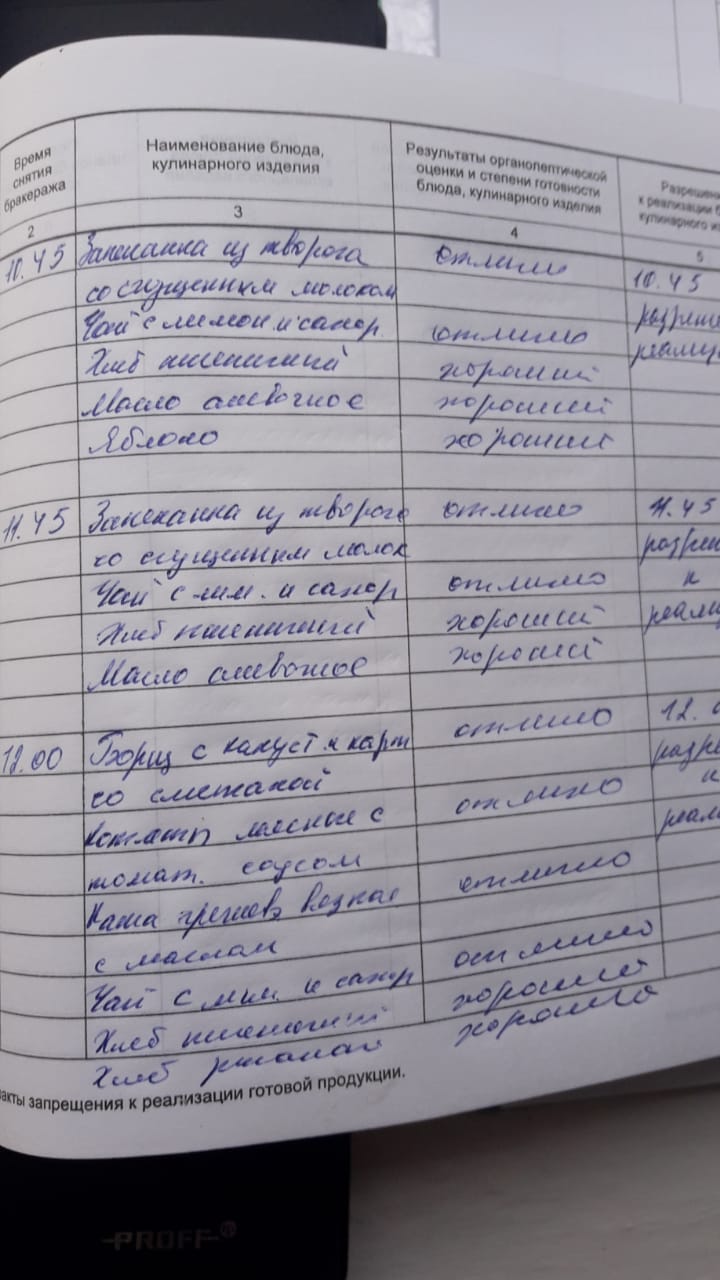 Время снятия бракеража
Наименование блюда, кулинарного изделия
Результаты органолептической оценки и степени готовности блюда, кулинарного изделия
к реализации
2 3 4 5
10.45 Запеканка из творога отлично 10.45
со сгущенным молоком
Чай с лимон и сахар. отлично
Хлеб пшеничный хороший
Масло сливочное хороший
Яблоко хороший
11.45 Запеканка из творога отлично 11.45
со сгущенным молок
Чай с лим. и сахар отлично к
Хлеб пшеничный хороший
Масло сливочное хороший
12.00 Борщ с капуст и карт отлично 12.
со сметаной
Котлеты мясные с отлично
томат. соусом
Каша гречнев вязкая отлично
с маслом
Чай с лим. и сахар отлично
Хлеб пшеничный хороший
Хлеб ржаной хорошо
запрещения к реализации готовой продукции.
PROFF